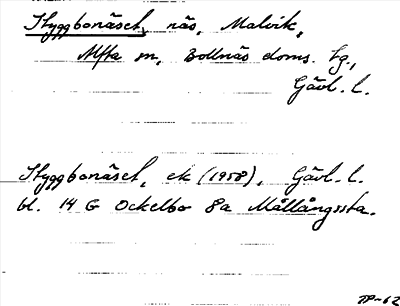 Skyggbonäset, näs, Malvik,
Alfta sn, Bollnäs doms. tg.,
Gävl. l.
Skyggbonäset, ek (1958), Gävl. l.
bl. 14 G Ockelbo 8a Mållångssta.
-62